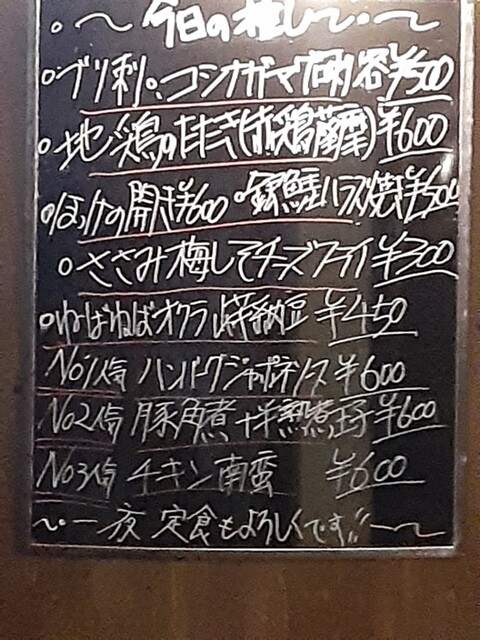 〜今日の推して〜
ブリ刺。コシナガマグロ ¥500
地鶏のたたき(赤鶏薩摩)¥600
ほっけの開き¥600 銀鮭ハラス焼き¥500
ささみ梅しそチーズフライ ¥300
ねばねばオクラ 納豆 ¥450
No1人気 ハンバーグジャポネソース ¥600
No2人気 豚角煮+半熟煮玉子 ¥600
No3人気 チキン南蛮 ¥600
〜一夜 定食もよろしくです!!〜